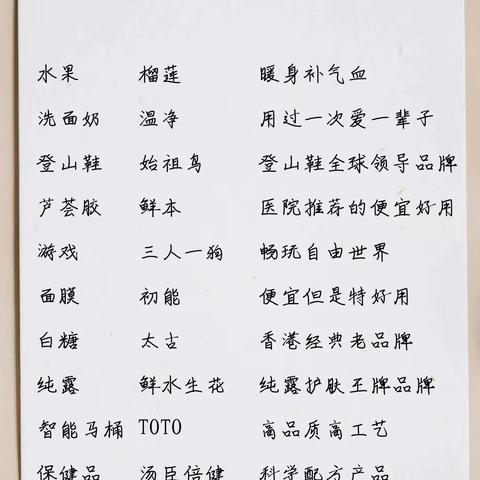 水果 榴莲 暖身补气血
洗面奶 温净 用过一次爱一辈子
登山鞋 始祖鸟 登山鞋全球领导品牌
芦荟胶 鲜本 医院推荐的便宜好用
游戏 三人一狗 畅玩自由世界
面膜 初能 便宜但是特好用
白糖 太古 香港经典老品牌
纯露 鲜水生花 纯露护肤王牌品牌
智能马桶 TOTO 高品质高工艺
保健品 汤臣倍健 科学配方产品